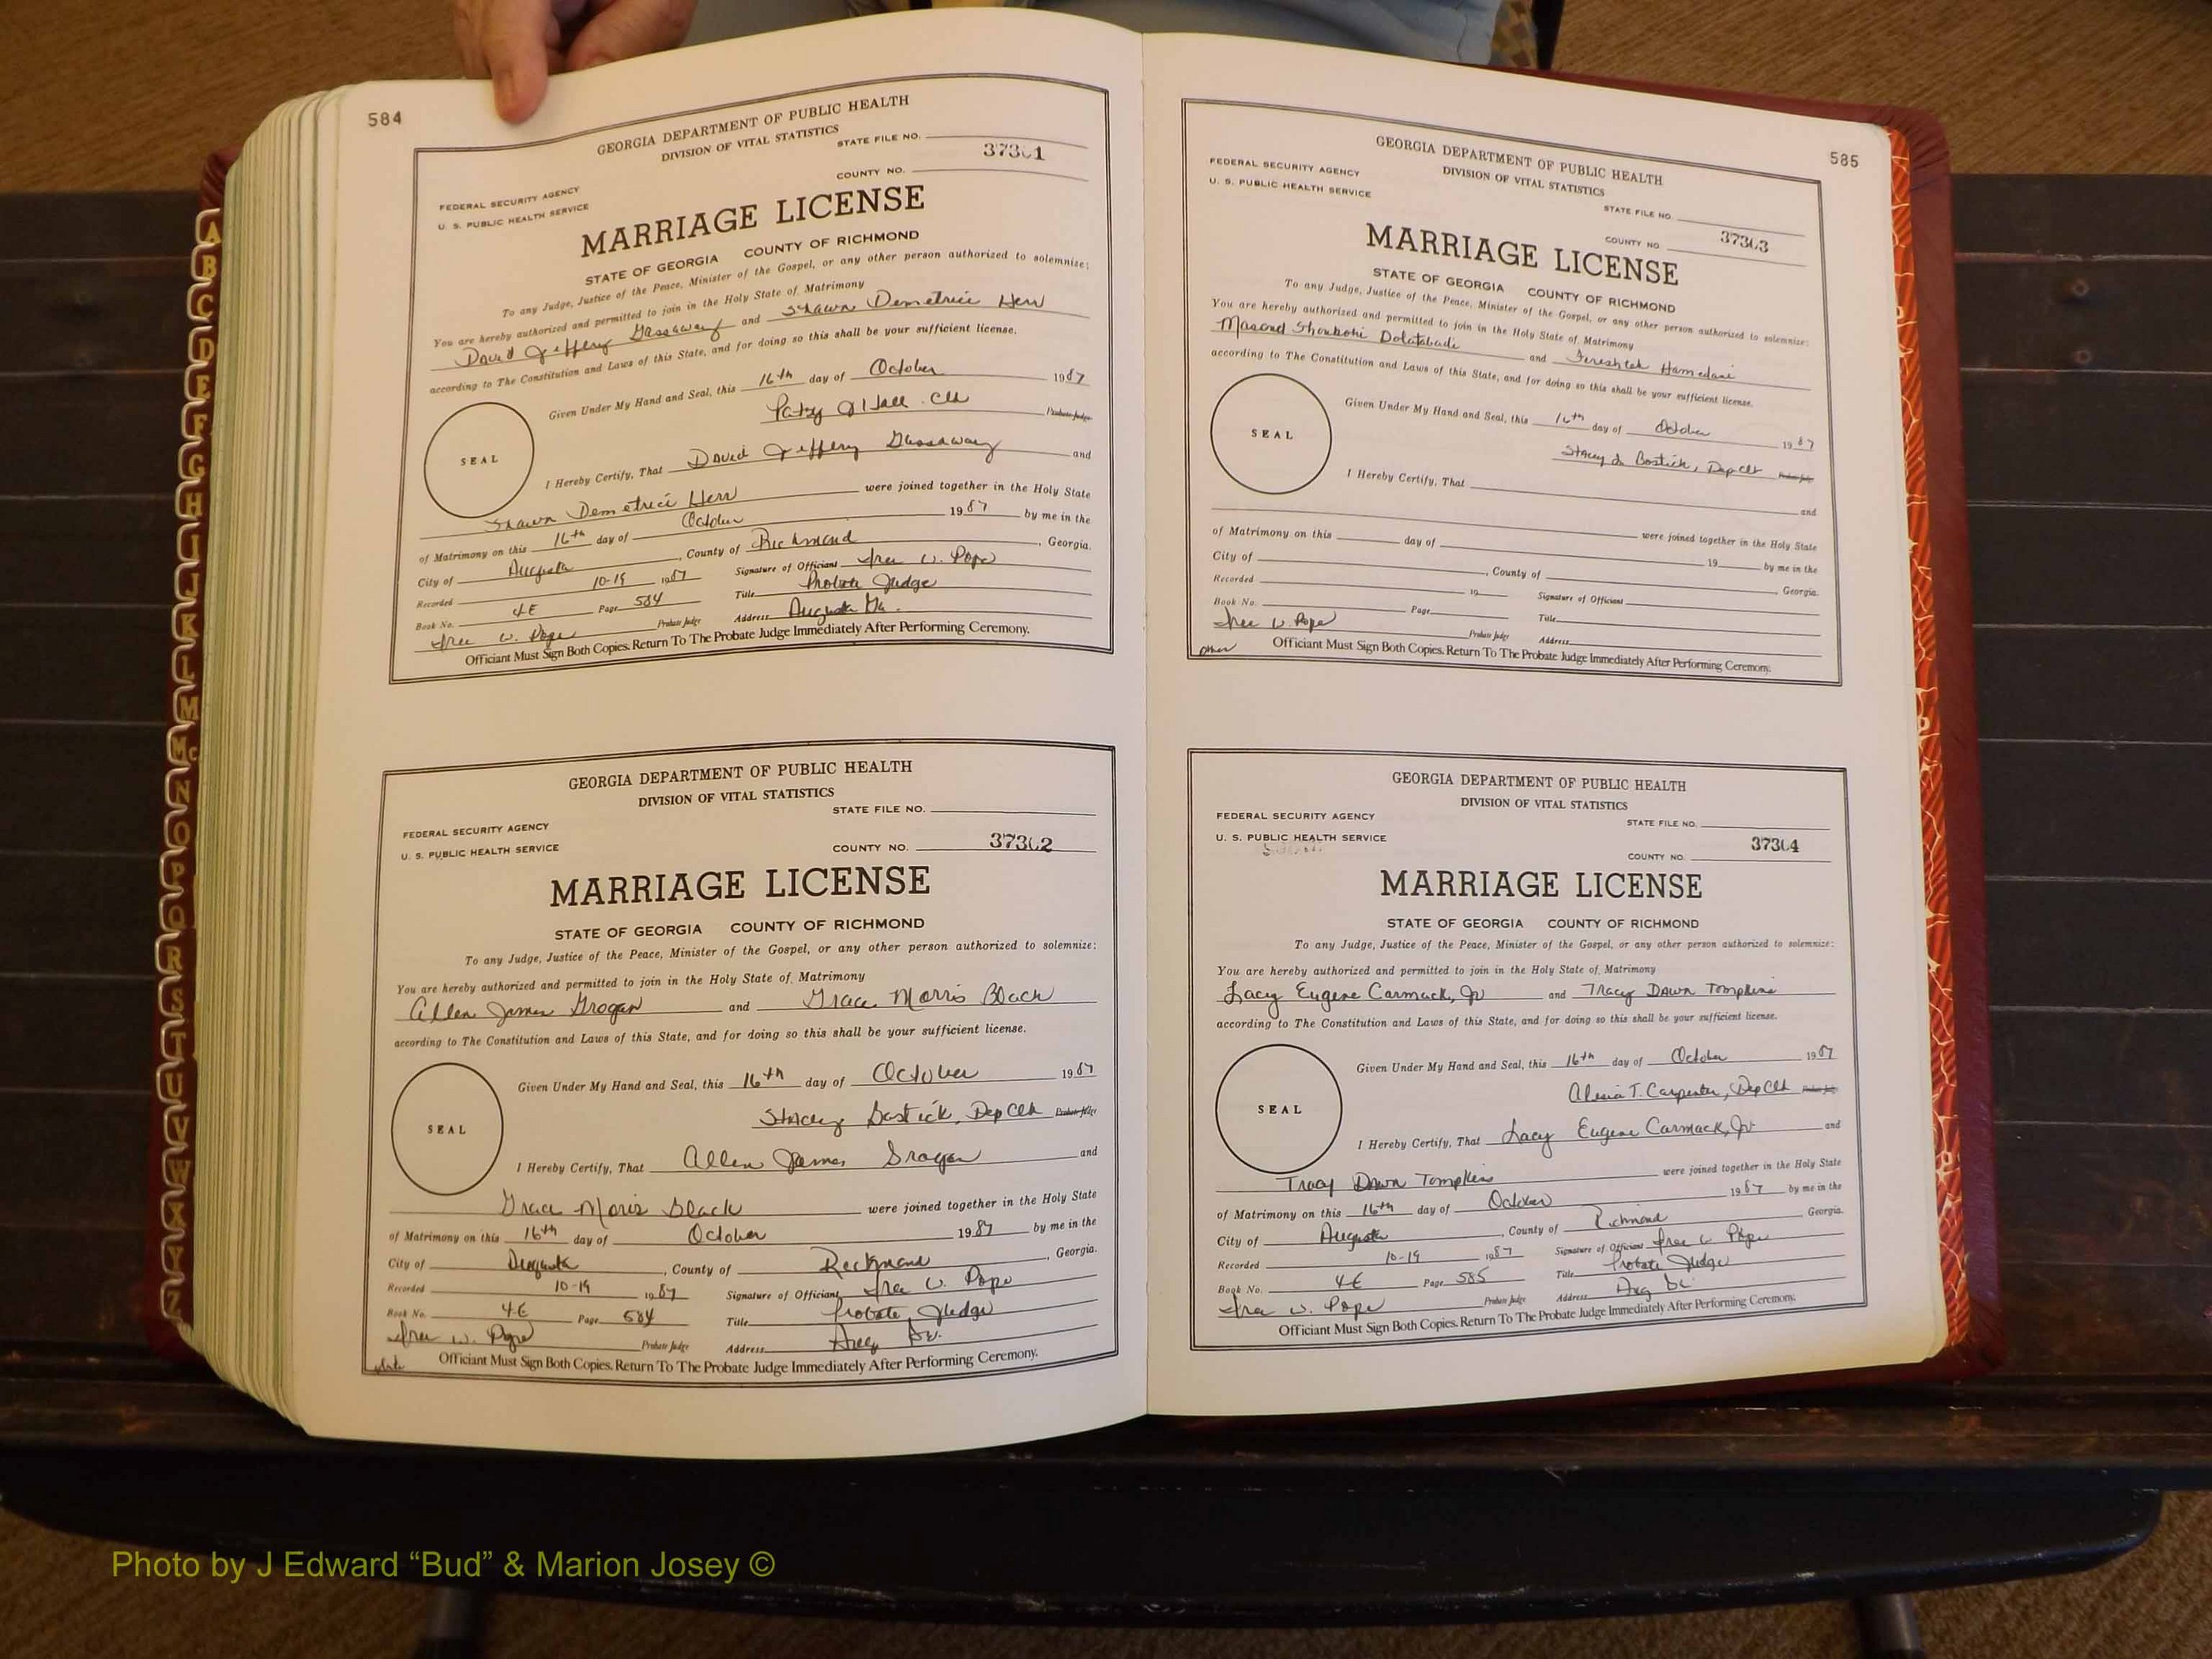 584
GEORGIA DEPARTMENT OF PUBLIC HEALTH
DIVISION OF VITAL STATISTICS
STATE FILE NO.
37301
FEDERAL SECURITY AGENCY
U. S. PUBLIC HEALTH SERVICE
COUNTY NO.
MARRIAGE LICENSE
STATE OF GEORGIA COUNTY OF RICHMOND
To any Judge, Justice of the Peace, Minister of the Gospel, or any other person authorized to solemnize:
You are hereby authorized and permitted to join in the Holy State of Matrimony
David Jeffery Gassaway and Shawn Demetrici Herr
according to The Constitution and Laws of this State, and for doing so this shall be your sufficient license.
Given Under My Hand and Seal, this 16th day of October 1987
Patsy Hall Clk Probate Judge
SEAL
I Hereby Certify, That David Jeffery Gassaway and
Shawn Demetrici Herr were joined together in the Holy State
of Matrimony on this 16th day of October 1987 by me in the
City of Augusta, County of Richmond, Georgia.
Recorded 10-19 1987 Signature of Officiant W. Pope
Book No. 4E Page 584 Title Probate Judge
W. Pope Probate Judge Address Augusta Ga.
Officiant Must Sign Both Copies. Return To The Probate Judge Immediately After Performing Ceremony.
GEORGIA DEPARTMENT OF PUBLIC HEALTH
DIVISION OF VITAL STATISTICS
STATE FILE NO.
FEDERAL SECURITY AGENCY
U. S. PUBLIC HEALTH SERVICE
COUNTY NO. 37302
MARRIAGE LICENSE
STATE OF GEORGIA COUNTY OF RICHMOND
To any Judge, Justice of the Peace, Minister of the Gospel, or any other person authorized to solemnize:
You are hereby authorized and permitted to join in the Holy State of Matrimony
Allen James Grogan and Grace Morris Black
according to The Constitution and Laws of this State, and for doing so this shall be your sufficient license.
Given Under My Hand and Seal, this 16th day of October 1987
Stacey Bostick, Dep Clk Probate Judge
SEAL
I Hereby Certify, That Allen James Grogan and
Grace Morris Black were joined together in the Holy State
of Matrimony on this 16th day of October 1987 by me in the
City of Augusta, County of Richmond, Georgia.
Recorded 10-19 1987 Signature of Officiant W. Pope
Book No. 4E Page 584 Title Probate Judge
W. Pope Probate Judge Address Aug
Officiant Must Sign Both Copies. Return To The Probate Judge Immediately After Performing Ceremony.
585
GEORGIA DEPARTMENT OF PUBLIC HEALTH
DIVISION OF VITAL STATISTICS
FEDERAL SECURITY AGENCY
U. S. PUBLIC HEALTH SERVICE
STATE FILE NO.
COUNTY NO. 37303
MARRIAGE LICENSE
STATE OF GEORGIA COUNTY OF RICHMOND
To any Judge, Justice of the Peace, Minister of the Gospel, or any other person authorized to solemnize:
You are hereby authorized and permitted to join in the Holy State of Matrimony
Masoud Shoukohi Dolatabadi and Fereshteh Hamedani
according to The Constitution and Laws of this State, and for doing so this shall be your sufficient license.
Given Under My Hand and Seal, this 16th day of October 1987
Stacey L Bostick, Dep Clk Probate Judge
SEAL
I Hereby Certify, That
and
were joined together in the Holy State
of Matrimony on this day of 19 by me in the
City of , County of Georgia.
Recorded 19 Signature of Officiant
Book No. Page Title
W. Pope Probate Judge Address
other Officiant Must Sign Both Copies. Return To The Probate Judge Immediately After Performing Ceremony.
GEORGIA DEPARTMENT OF PUBLIC HEALTH
DIVISION OF VITAL STATISTICS
FEDERAL SECURITY AGENCY
STATE FILE NO.
U. S. PUBLIC HEALTH SERVICE
COUNTY NO. 37304
MARRIAGE LICENSE
STATE OF GEORGIA COUNTY OF RICHMOND
To any Judge, Justice of the Peace, Minister of the Gospel, or any other person authorized to solemnize:
You are hereby authorized and permitted to join in the Holy State of Matrimony
Lacy Eugene Carmack, Jr and Tracy Dawn Tompkins
according to The Constitution and Laws of this State, and for doing so this shall be your sufficient license.
Given Under My Hand and Seal, this 16th day of October 1987
Alesia T. Carpenter, Dep Clk Probate Judge
SEAL
I Hereby Certify, That Lacy Eugene Carmack, Jr and
Tracy Dawn Tompkins were joined together in the Holy State
of Matrimony on this 16th day of October 1987 by me in the
City of Augusta, County of Richmond Georgia.
Recorded 10-19 1987 Signature of Officiant Pope
Book No. 4E Page 585 Title Probate Judge
W. Pope Probate Judge Address Aug
Officiant Must Sign Both Copies. Return To The Probate Judge Immediately After Performing Ceremony.
A
B
C
D
E
F
G
H
I
J
K
L
M
Mc
N
O
P
Q
R
S
T
U
V
W
X
Y
Z
Photo by J Edward “Bud” & Marion Josey ©